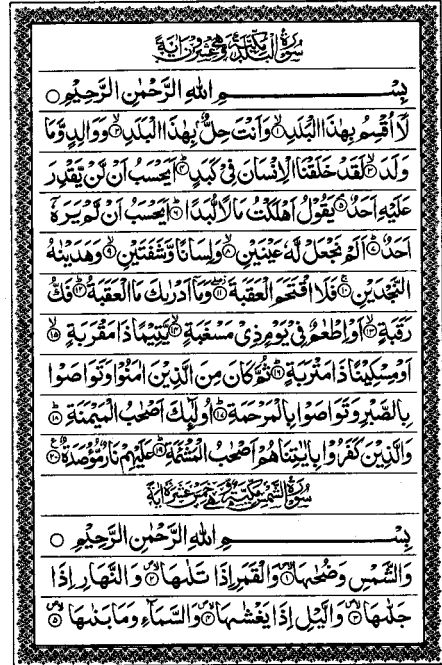 سُوْرَةُ الْبَلَدِ مَكِّيَّةٌ وَّهِيَ عِشْرُوْنَ اٰيَةً
بِسْــــــمِ اللهِ الرَّحْمٰنِ الرَّحِيْمِ ○
لَآ اُقْسِمُ بِهٰذَا الْبَلَدِ ۝۱ وَاَنْتَ حِلٌّۢ بِهٰذَا الْبَلَدِ ۝۲ وَوَالِدٍ وَّمَا
وَلَدَ ۝۳ لَقَدْ خَلَقْنَا الْاِنْسَانَ فِيْ كَبَدٍ ۝۴ اَيَحْسَبُ اَنْ لَّنْ يَّقْدِرَ
عَلَيْهِ اَحَدٌ ۝۵ يَقُوْلُ اَهْلَكْتُ مَالًا لُّبَدًا ۝۶ اَيَحْسَبُ اَنْ لَّمْ يَرَهٗٓ
اَحَدٌ ۝۷ اَلَمْ نَجْعَلْ لَّهٗ عَيْنَيْنِ ۝۸ وَلِسَانًا وَّشَفَتَيْنِ ۝۹ وَهَدَيْنٰهُ
النَّجْدَيْنِ ۝۱۰ فَلَا اقْتَحَمَ الْعَقَبَةَ ۝۱۱ وَمَآ اَدْرٰىكَ مَا الْعَقَبَةُ ۝۱۲ فَكُّ
رَقَبَةٍ ۝۱۳ اَوْ اِطْعٰمٌ فِيْ يَوْمٍ ذِيْ مَسْغَبَةٍ ۝۱۴ يَّتِيْمًا ذَا مَقْرَبَةٍ ۝۱۵
اَوْ مِسْكِيْنًا ذَا مَتْرَبَةٍ ۝۱۶ ثُمَّ كَانَ مِنَ الَّذِيْنَ اٰمَنُوْا وَتَوَاصَوْا
بِالصَّبْرِ وَتَوَاصَوْا بِالْمَرْحَمَةِ ۝۱۷ اُولٰٓئِكَ اَصْحٰبُ الْمَيْمَنَةِ ۝۱۸
وَالَّذِيْنَ كَفَرُوْا بِاٰيٰتِنَا هُمْ اَصْحٰبُ الْمَشْئَمَةِ ۝۱۹ عَلَيْهِمْ نَارٌ مُّؤْصَدَةٌ ۝۲۰
سُوْرَةُ الشَّمْسِ مَكِّيَّةٌ وَّهِيَ خَمْسَ عَشْرَةَ اٰيَةً
بِسْــــــمِ اللهِ الرَّحْمٰنِ الرَّحِيْمِ ○
وَالشَّمْسِ وَضُحٰىهَا ۝۱ وَالْقَمَرِ اِذَا تَلٰىهَا ۝۲ وَالنَّهَارِ اِذَا
جَلّٰىهَا ۝۳ وَالَّيْلِ اِذَا يَغْشٰىهَا ۝۴ وَالسَّمَآءِ وَمَا بَنٰىهَا ۝۵